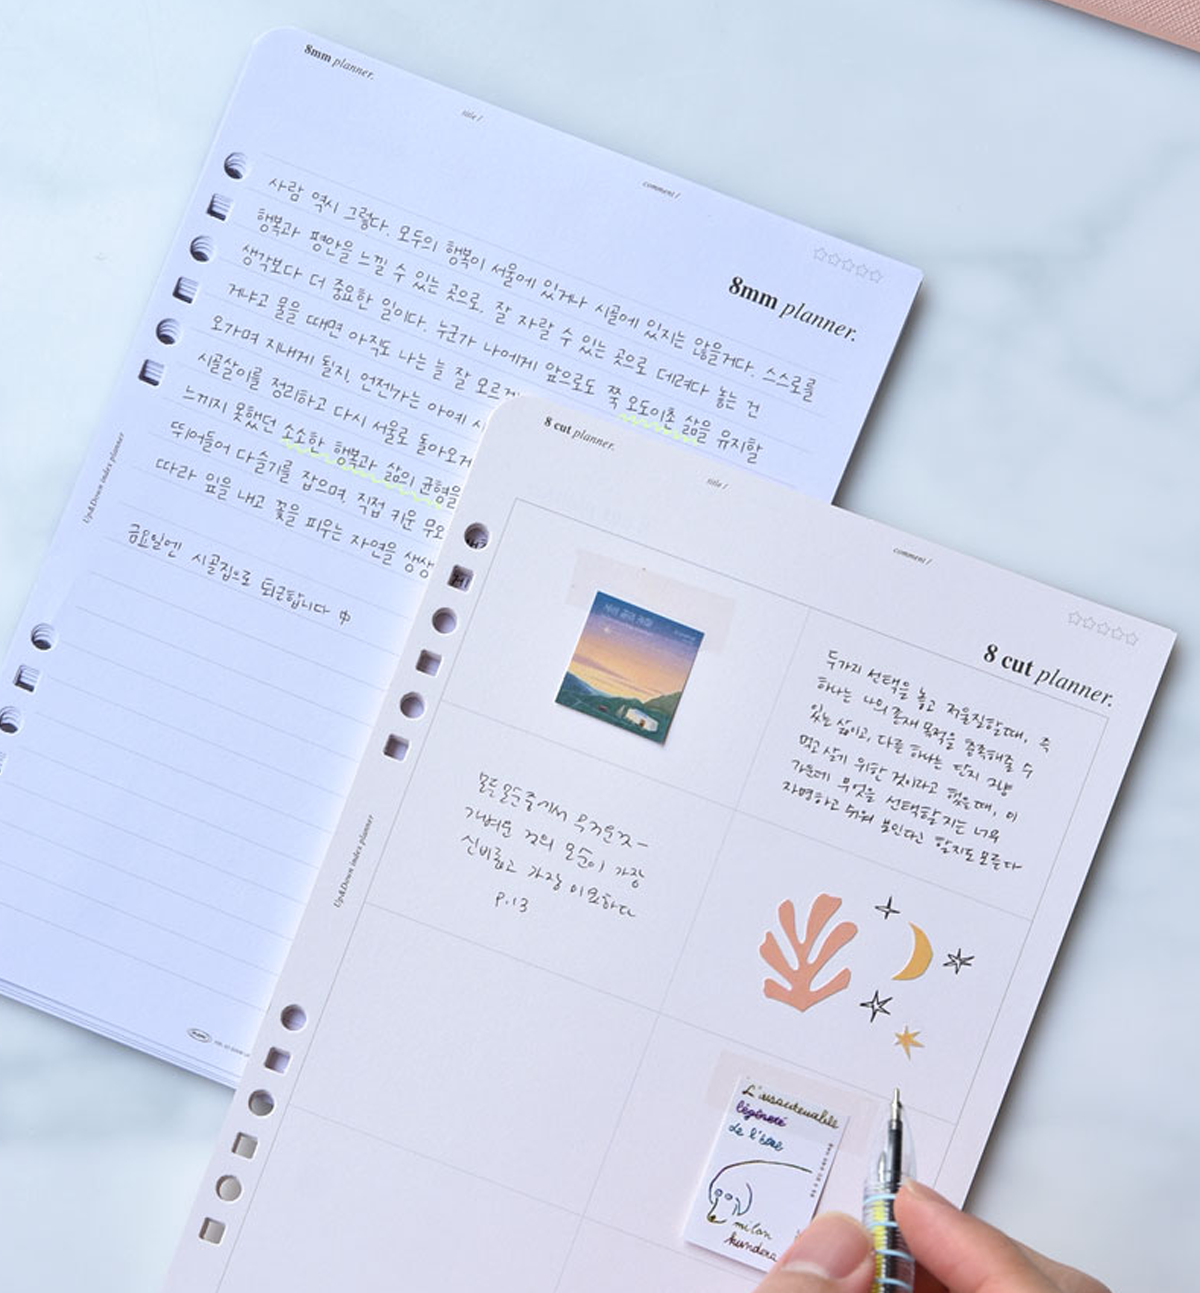 8mm planner.
title /
comment /
8mm planner.
사람 역시 그렇다. 모두의 행복이 서울에 있거나 시골에 있지는 않을거다. 스스로를
행복과 평안을 느낄 수 있는 곳으로, 잘 자랄 수 있는 곳으로 데려다 놓는 건
생각보다 더 중요한 일이다. 누군가 나에게 앞으로도 쭉 오도이촌 삶을 유지할
거냐고 물을 때면 아직도 나는 늘 잘 모르겠
오가며 지내게 될지, 언젠가는 아예 시
시골살이를 정리하고 다시 서울로 돌아오게
느끼지 못했던 소소한 행복과 삶의 균형을
뛰어들어 다슬기를 잡으며, 직접 키운 무와
따라 잎을 내고 꽃을 피우는 자연을 생생
금요일엔 시골집으로 퇴근합니다 中
Up&Down index planner
8 cut planner.
title /
comment /
8 cut planner.
두가지 선택을 놓고 저울질할때, 즉
하나는 나의 존재 목적을 충족해줄 수
있는 삶이고, 다른 하나는 단지 그냥
먹고 살기 위한 것이라고 했을때, 이
가운데 무엇을 선택할지는 너무
자명하고 쉬워 보인다고 할지도 모른다
모든 모순 중에서 무거운것-
가벼운 것의 모순이 가장
신비롭고 가장 미묘하다
P.13
Up&Down index planner
L'insoutenable
légèreté
de l'être
milan
kundera